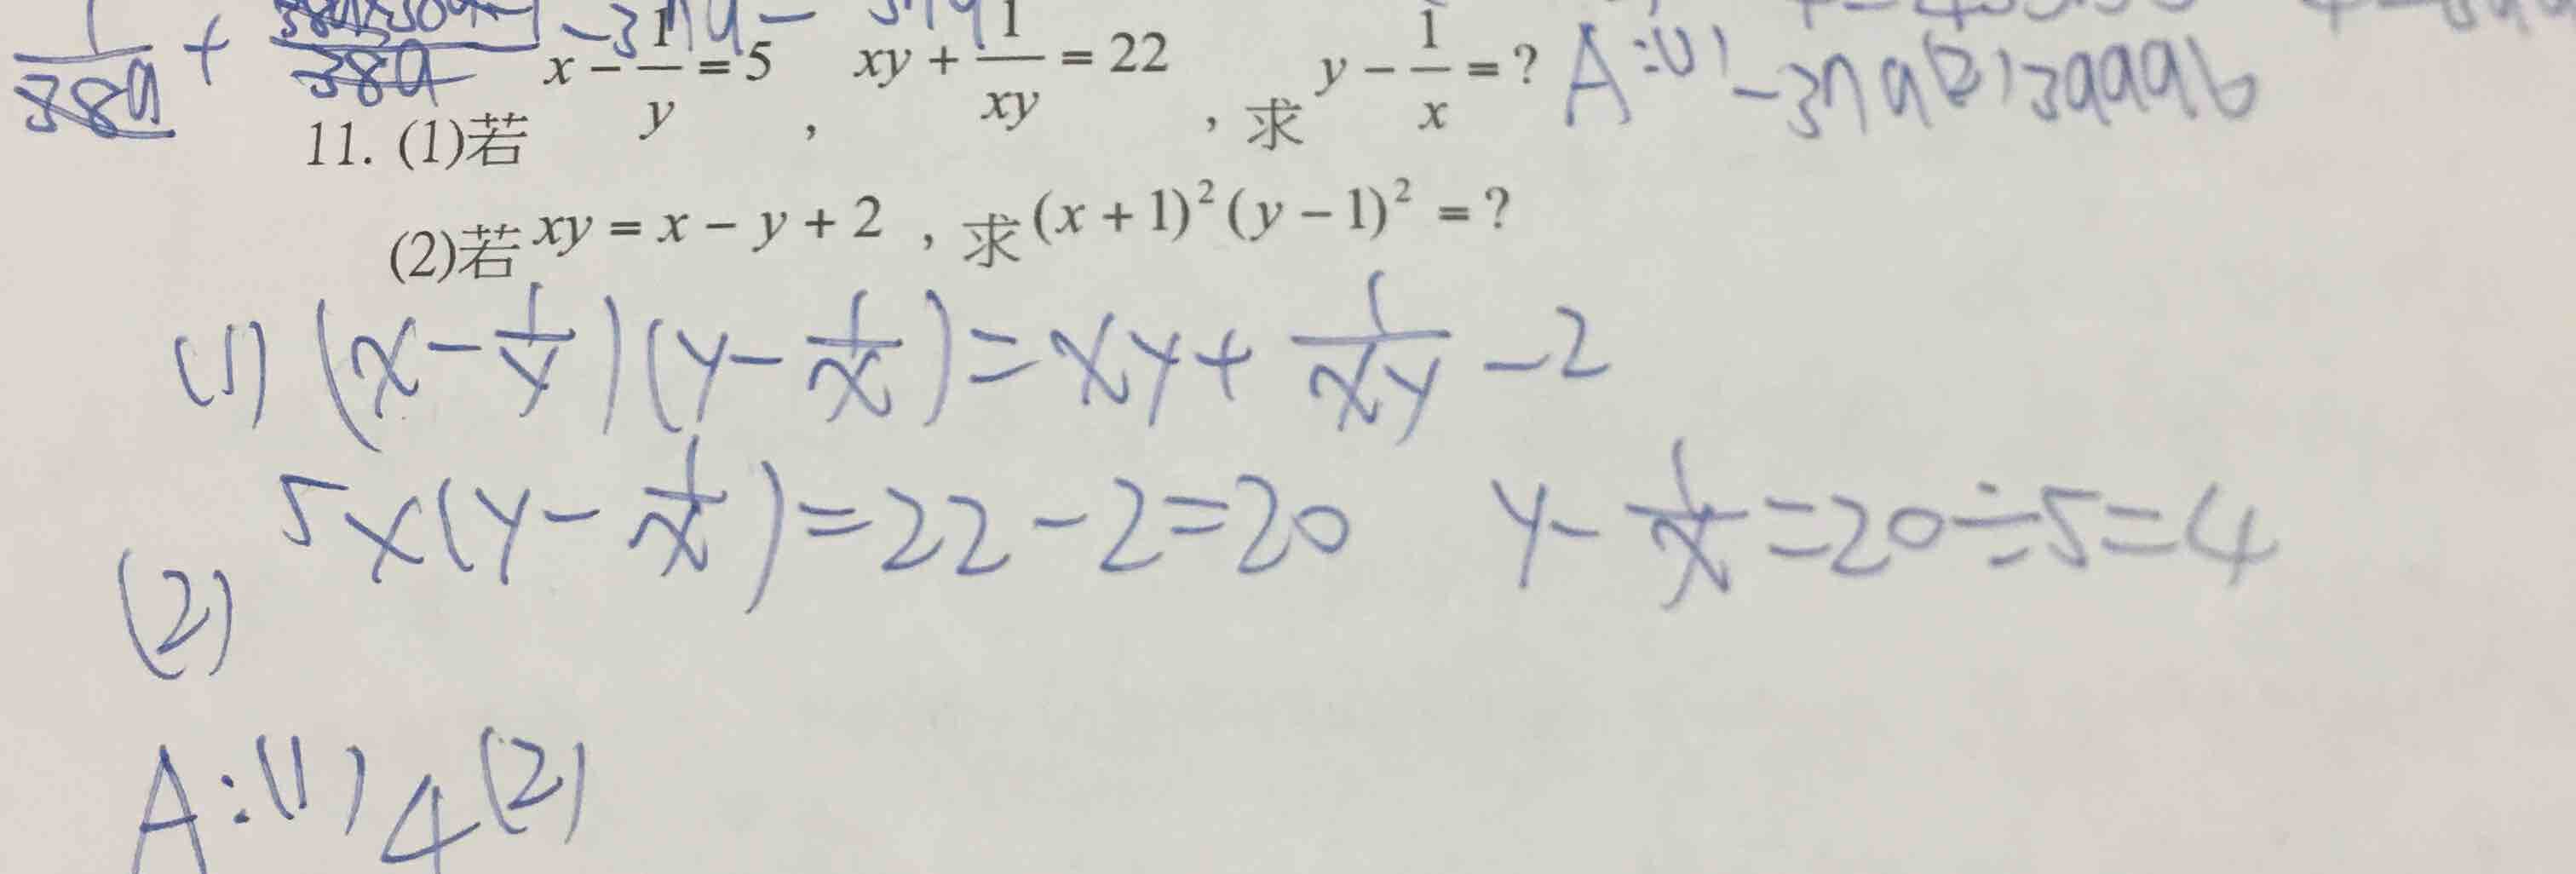 1/389 + 389
11. (1)若 x - 1/y = 5 , xy + 1/xy = 22 , 求 y - 1/x = ? A:(1) -379 (2) 39996
(2)若 xy = x - y + 2 , 求 (x + 1)² (y - 1)² = ?
(1) (x - 1/y)(y - 1/x) = xy + 1/xy - 2
5×(y - 1/x) = 22 - 2 = 20 y - 1/x = 20÷5 = 4
(2)
A:(1) 4 (2)